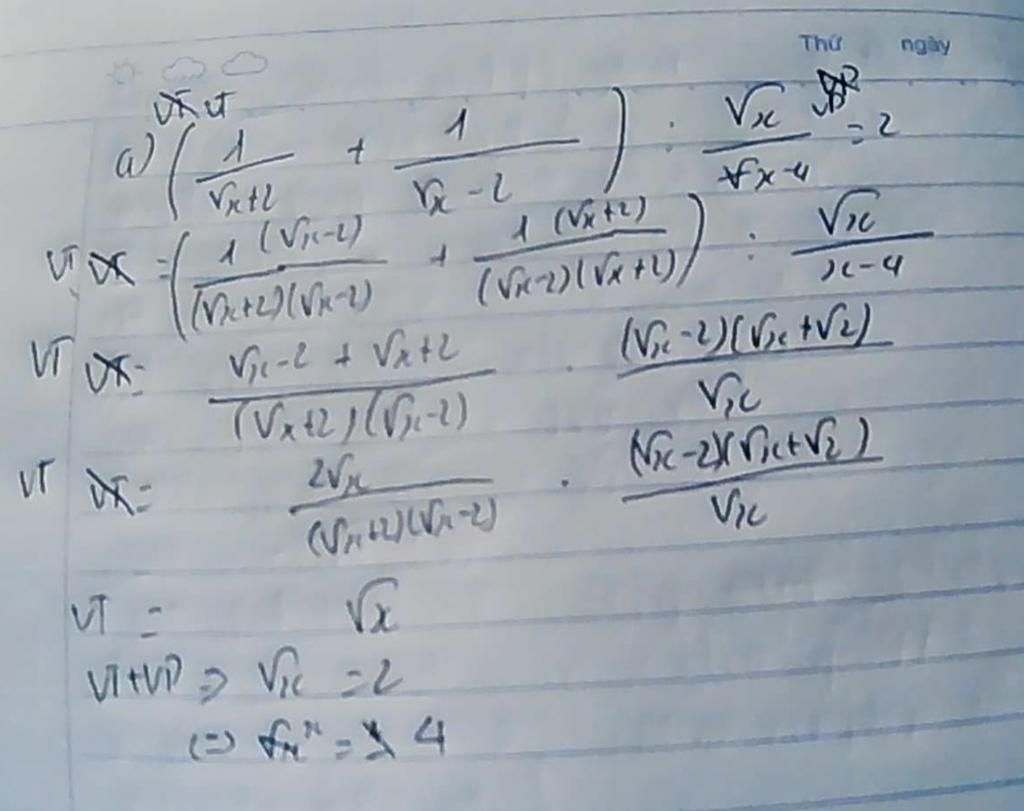 Thứ ngày
VT
a) (1/(√x+2) + 1/(√x-2)) : √x/(x-4) = 2
VT = (1(√x-2)/((√x+2)(√x-2)) + 1(√x+2)/((√x-2)(√x+2))) : √x/(x-4)
VT = (√x-2 + √x+2)/((√x+2)(√x-2)) . (√x-2)(√x+√2)/√x
VT = 2√x/((√x+2)(√x-2)) . (√x-2)(√x+√2)/√x
VT = √x
VT+VP => √x = 2
<=> x = 4